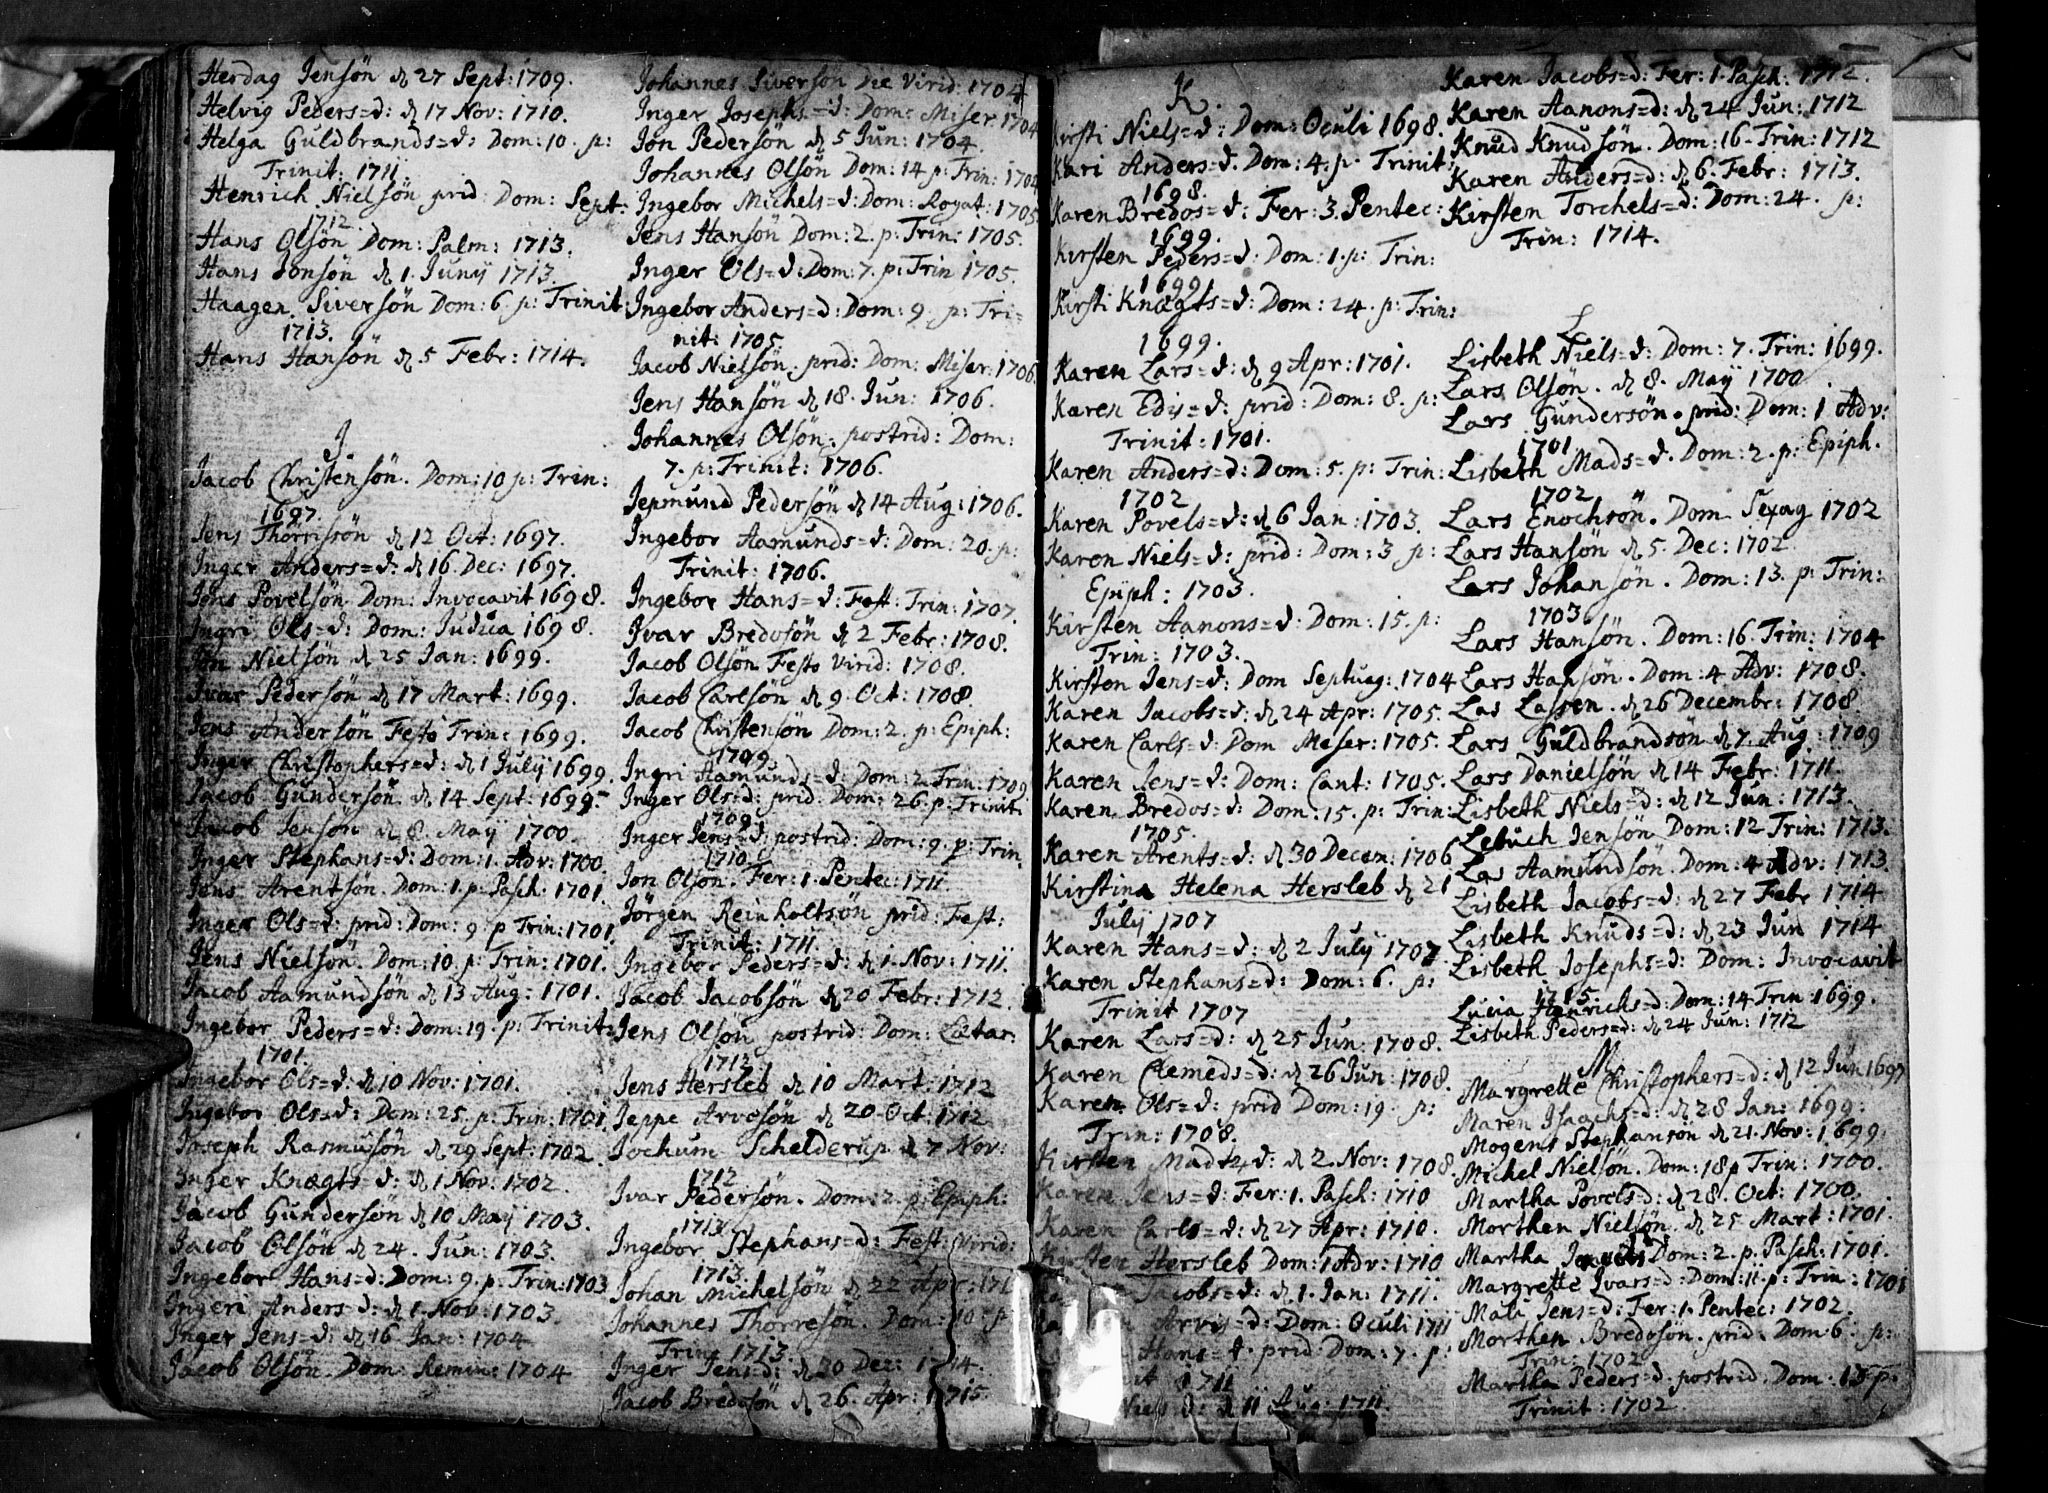 Herdag Jensøn d 27 Sept: 1709.
Helvig Peders=d: d 17 Nov: 1710.
Helga Guldbrands=d: Dom: 10. p:
Trinit: 1711.
Henrich Nielsøn prid: Dom: Sept:
1712.
Hans Olsøn Dom: Palm: 1713.
Hans Jonsøn d 1. Junij 1713.
Haagen Siversøn Dom: 6 p: Trinit:
1713.
Hans Hansøn d 5 Febr: 1714.
J.
Jacob Christensøn. Dom: 10 p: Trin:
1697.
Jens Thorrissøn d 12 Oct: 1697.
Inger Anders=d: d 16. Dec: 1697.
Jøns Povelsøn Dom: Invocavit 1698.
Ingri Ols=d: Dom: Judica 1698.
Jon Nielsøn d 25 Jan: 1699.
Ivar Pedersøn d 17 Mart: 1699.
Jens Andersøn Festo Trin: 1699.
Inger Christophers=d: d 1 Julij 1699.
Jacob Gundersøn d 14 Sept: 1699.
Jacob Jensøn d 8. Maij 1700.
Inger Stephans=d: Dom: 1. Adv: 1700.
Jens Arentsøn. Dom: 1. p: Pasch: 1701.
Inger Ols=d: prid: Dom: 9 p Trin: 1701.
Jens Nielsøn. Dom: 10 p: Trin: 1701.
Jacob Aamundsøn d 13 Aug: 1701.
Ingebor Peders=d: Dom: 19. p: Trinit:
1701.
Ingebor Ols=d: d 10 Nov: 1701.
Ingebor Ols=d: Dom: 25. p: Trin: 1701.
Joseph Rasmusøn d 29 Sept: 1702.
Inger Knægts=d: d 1 Nov: 1702.
Jacob Gundersøn d 10 Maij 1703.
Jacob Olsøn d 24. Jun: 1703.
Ingebor Hans=d: Dom: 9. p: Trin: 1703
Ingeri Anders=d: d 1. Nov: 1703.
Inger Jens=d: d 16 Jan: 1704
Jacob Olsøn. Dom: Remin: 1704
Johannes Siversøn Die Virid: 1704
Inger Josephs=d: Dom: Miser 1704
Jon Pedersøn d 5 Jun: 1704.
Johannes Olsøn Dom: 14 p: Trin: 1704
Ingebor Michels=d: Dom: Rogat: 1705
Jens Hansøn Dom: 2. p: Trin: 1705.
Inger Ols=d: Dom: 7. p: Trin 1705.
Ingebor Anders=d: Dom: 9. p: Tri=
nit: 1705.
Jacob Nielsøn. prid: Dom: Miser: 1706.
Jens Hansøn d 18. Jun: 1706.
Johannes Olsøn. postrid: Dom:
7. p: Trinit: 1706.
Jepmund Pedersøn d 14 Aug: 1706.
Ingebor Aamunds=d: Dom: 20. p:
Trinit: 1706.
Ingebor Hans=d: Fest: Trin: 1707.
Ivar Bredosøn d 2 Febr: 1708.
Jacob Olsøn Festo Virid: 1708.
Jacob Carlsøn d 9. Oct: 1708.
Jacob Christensøn Dom: 2. p: Epiph:
1709.
Ingri Aamunds=d: Dom: 2 Trin: 1709
Inger Ols=d: prid: Dom: 26. p: Trinit:
1709.
Inger Jens=d: postrid: Dom: 9. p: Trin.
1710.
Jon Olson. Fer: 1. Pentec: 1711
Jørgen Reinholtsøn prid: Fest:
Trinit: 1711.
Ingebor Peders=d: d 1. Nov: 1711.
Jacob Jacobsøn d 20 Febr: 1712.
Jens Olsøn postrid: Dom: Lætar:
1712.
Jens Hersleb d 10 Mart: 1712
Jeppe Arvesøn d 20. Oct: 1712
Jochum Schelderup. d 7 Nov:
1712
Ivar Pedersøn. Dom: 2. p: Epiph:
1713.
Ingebor Stephans=d: Fest: Virid:
1713.
Johan Michelsøn d 22 Apr:
Johannes Thorresøn. Dom: 10. p:
Trin: 1713.
Inger Jens=d: d 20 Dec: 1714.
Jacob Bredosøn d 26. Apr: 1715.
K.
Kirsti Niels=d: Dom: Oculi 1698.
Kari Anders=d. Dom: 4. p. Trinit:
1698.
Karen Bredos=d: Fer: 3. Pentec:
1699.
Kirsten Peders=d: Dom: 1. p: Trin:
1699.
Kirsti Knægts=d: Dom: 24. p: Trin:
1699.
Karen Lars=d: d 9 Apr: 1701.
Karen Edis=d: prid: Dom: 8. p:
Trinit: 1701.
Karen Anders=d: Dom: 5. p: Trin:
1702
Karen Povels=d: d 6 Jan: 1703.
Karen Niels=d: prid: Dom: 3. p:
Epiph: 1703.
Kirsten Aanons=d: Dom: 15. p:
Trin: 1703.
Kirsten Jens=d: Dom Septuag: 1704
Karen Jacobs=d: d 24 Apr: 1705.
Karen Carls=d: Dom Meser: 1705.
Karen Jens=d: Dom: Cant: 1705.
Karen Bredos=d: Dom: 15. p: Trin:
1705.
Karen Arents=d: d 30 Decem: 1706
Kirstina Helena Hersleb d 21
Julij 1707
Karen Hans=d: d 2 Julij 1707.
Karen Stephans=d: Dom: 6. p:
Trinit 1707
Karen Lars=d: d 25 Jun: 1708.
Karen Clemeds=d: d 26 Jun: 1708.
Karen Ols=d: prid Dom: 19. p:
Trin: 1708.
Kirsten Mads=d: d 2. Nov: 1708.
Karen Jens=d: Fer: 1. Pasch: 1710
Karen Carls=d: d 27 Apr: 1710.
Kirsten Hersleb Dom: 1 Adv: 1710
Jacobs=d: d 1. Jan: 1711.
Arvis=d: Dom: Oculi 1711
Hans=d. prid Dom: 7. p:
1711
Niels d: d 11 Aug: 1711.
Karen Jacobs=d: Fer: 1. Pasch: 1712.
Karen Aanons=d: d 24 Jun: 1712
Knud Knudsøn. Dom: 16. Trin: 1712
Karen Anders=d: d 6. Febr: 1713.
Kirsten Torchels=d: Dom: 24. p:
Trin: 1714.
L
Lisbeth Niels=d: Dom: 7. Trin: 1699.
Lars Olsøn. d 8. Maij 1700.
Lars Gundersøn. prid: Dom: 1 Adv:
1701
Lisbeth Mads=d. Dom: 2. p: Epiph.
1702
Lars Enochsøn. Dom Sexag 1702
Lars Hansøn d 5. Dec: 1702.
Lars Johansøn. Dom: 13. p: Trin:
1703.
Lars Hansøn. Dom: 16. Trin: 1704
Lars Hansøn. Dom: 4 Adv: 1708.
Las Lassen. d 26 Decembr: 1708
Lars Guldbrandsøn d 7. Aug: 1709
Lars Danielsøn d 14 Febr: 1711.
Lisbeth Niels=d: d 12 Jun: 1713.
Lebuch Jensøn Dom: 12 Trin: 1713.
Las Aamundsøn. Dom: 4 Adv: 1713.
Lisbeth Jacobs=d: d 27 Febr 1714
Lisbeth Knuds=d: d 23 Jun 1714
Lisbeth Josephs=d: Dom: Invocavit
1715.
Lucia Henrichs=d: Dom: 14 Trin 1699.
Lisbeth Peders=d: d 24 Jun: 1712
M
Margrette Christophers=d: d 12 Jun 1697
Maren Isaachs=d: d 28 Jan: 1699:
Mogens Stephansøn d 21. Nov: 1699.
Michel Nielsøn. Dom: 18 p Trin: 1700.
Martha Povels d: d 28. Oct: 1700.
Morthen Nielsøn. d 25 Mart: 1701.
Martha Dom: 2. p. Pasch: 1701.
Margrette Ivars=d: Dom: 11. p: Trin: 1701
Jens=d: Fer: 1. Pentec: 1702.
Morthen Bredosøn. prid: Dom 6. p:
Trin: 1702
Martha Peders=d. postrid. Dom. p.
Trinit: 1702.